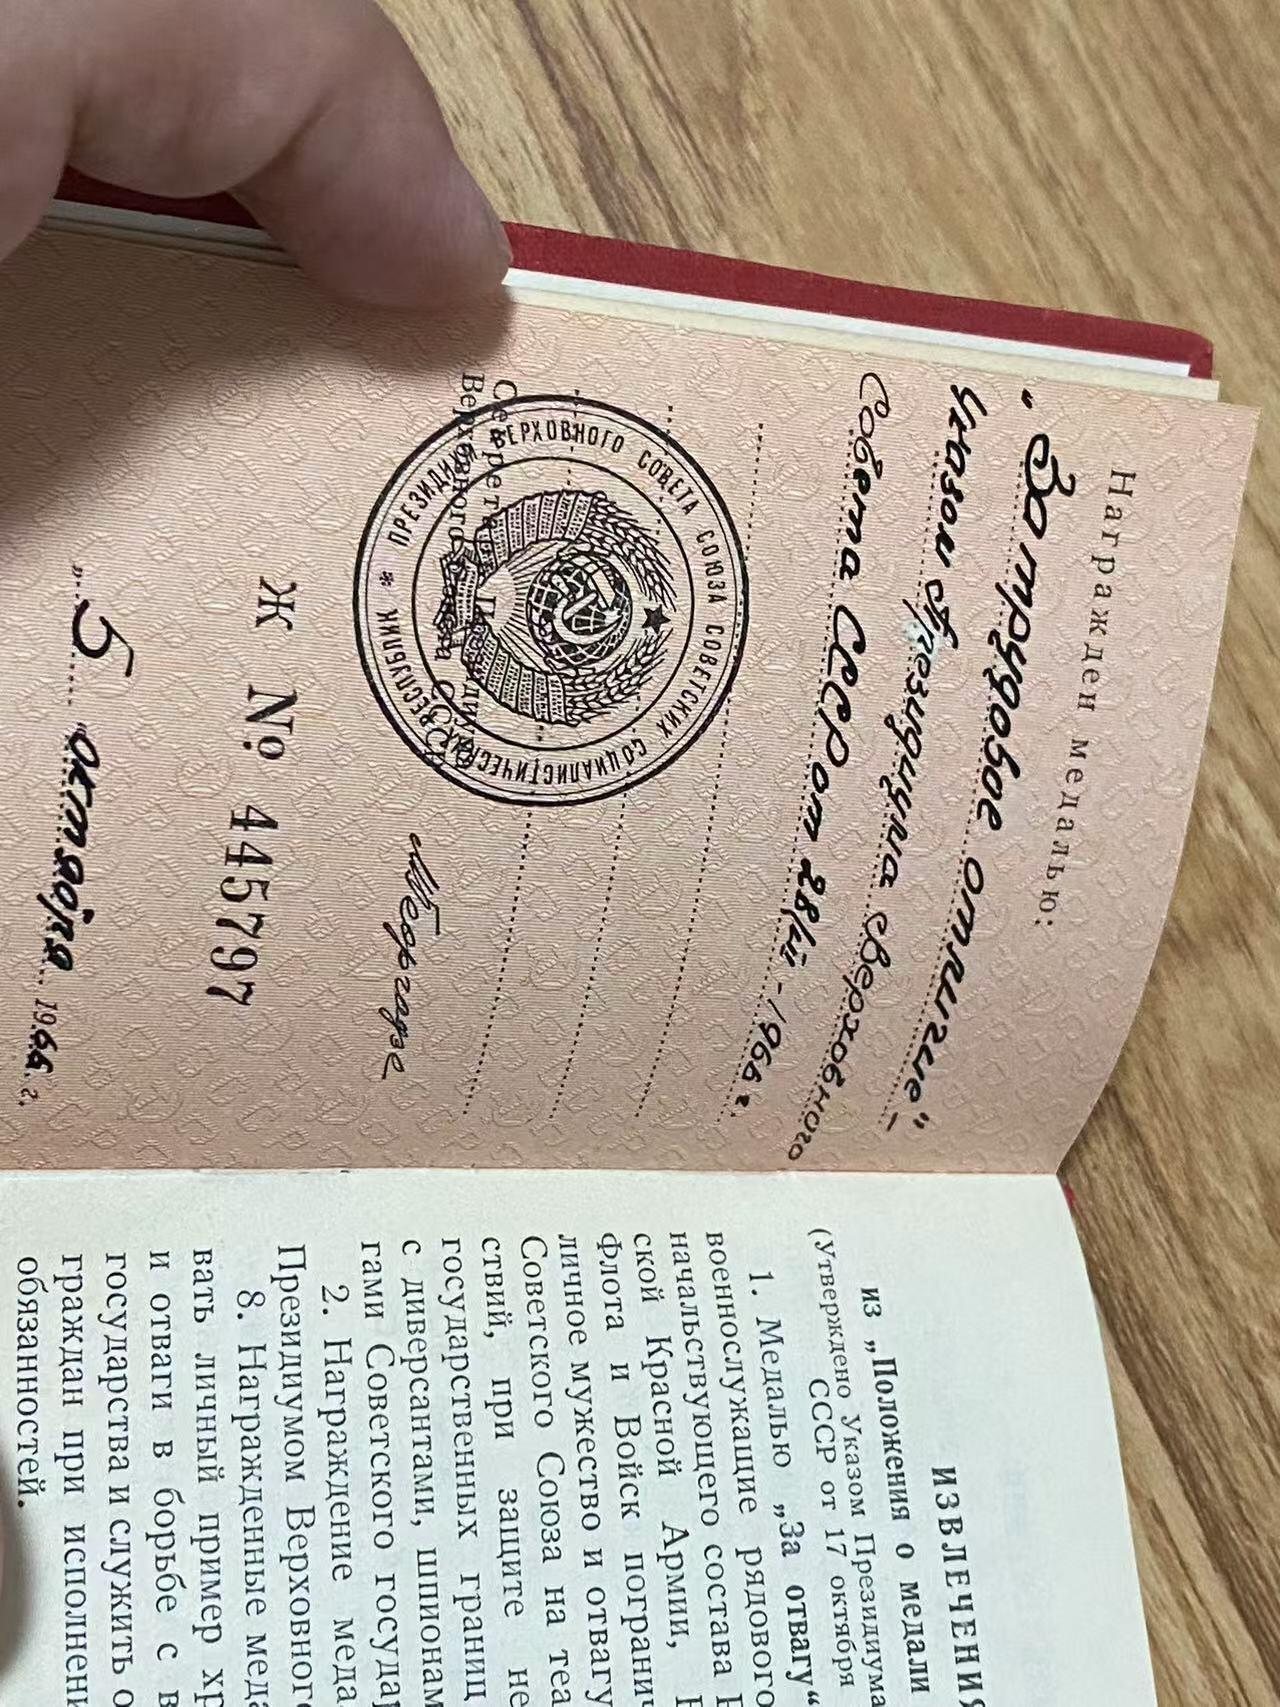 Награжден медалью:
„За трудовое отличие" –
Указом Президиума Верховного
Совета СССР от 28/VII - 1966 г.
ПРЕЗИДИУМ ВЕРХОВНОГО СОВЕТА СОЮЗА СОВЕТСКИХ СОЦИАЛИСТИЧЕСКИХ РЕСПУБЛИК *
Секретарь Президиума
Верховного Совета СССР
МГеоргадзе
Ж № 445797
„5 октября 1966 г.
ИЗВЛЕЧЕНИЯ
из „Положения о медали
(Утверждено Указом Президиума
СССР от 17 октября
1. Медалью „За отвагу"
военнослужащие рядового
начальствующего состава
ской Красной Армии,
Флота и Войск погранич
личное мужество и отвагу
Советского Союза на теа
ствий, при защите не
государственных границ
с диверсантами, шпионам
гами Советского государ
2. Награждение меда
Президиумом Верховног
8. Награжденные меда
вать личный пример хр
и отваги в борьбе с в
государства и служить о
граждан при исполнени
обязанностей.